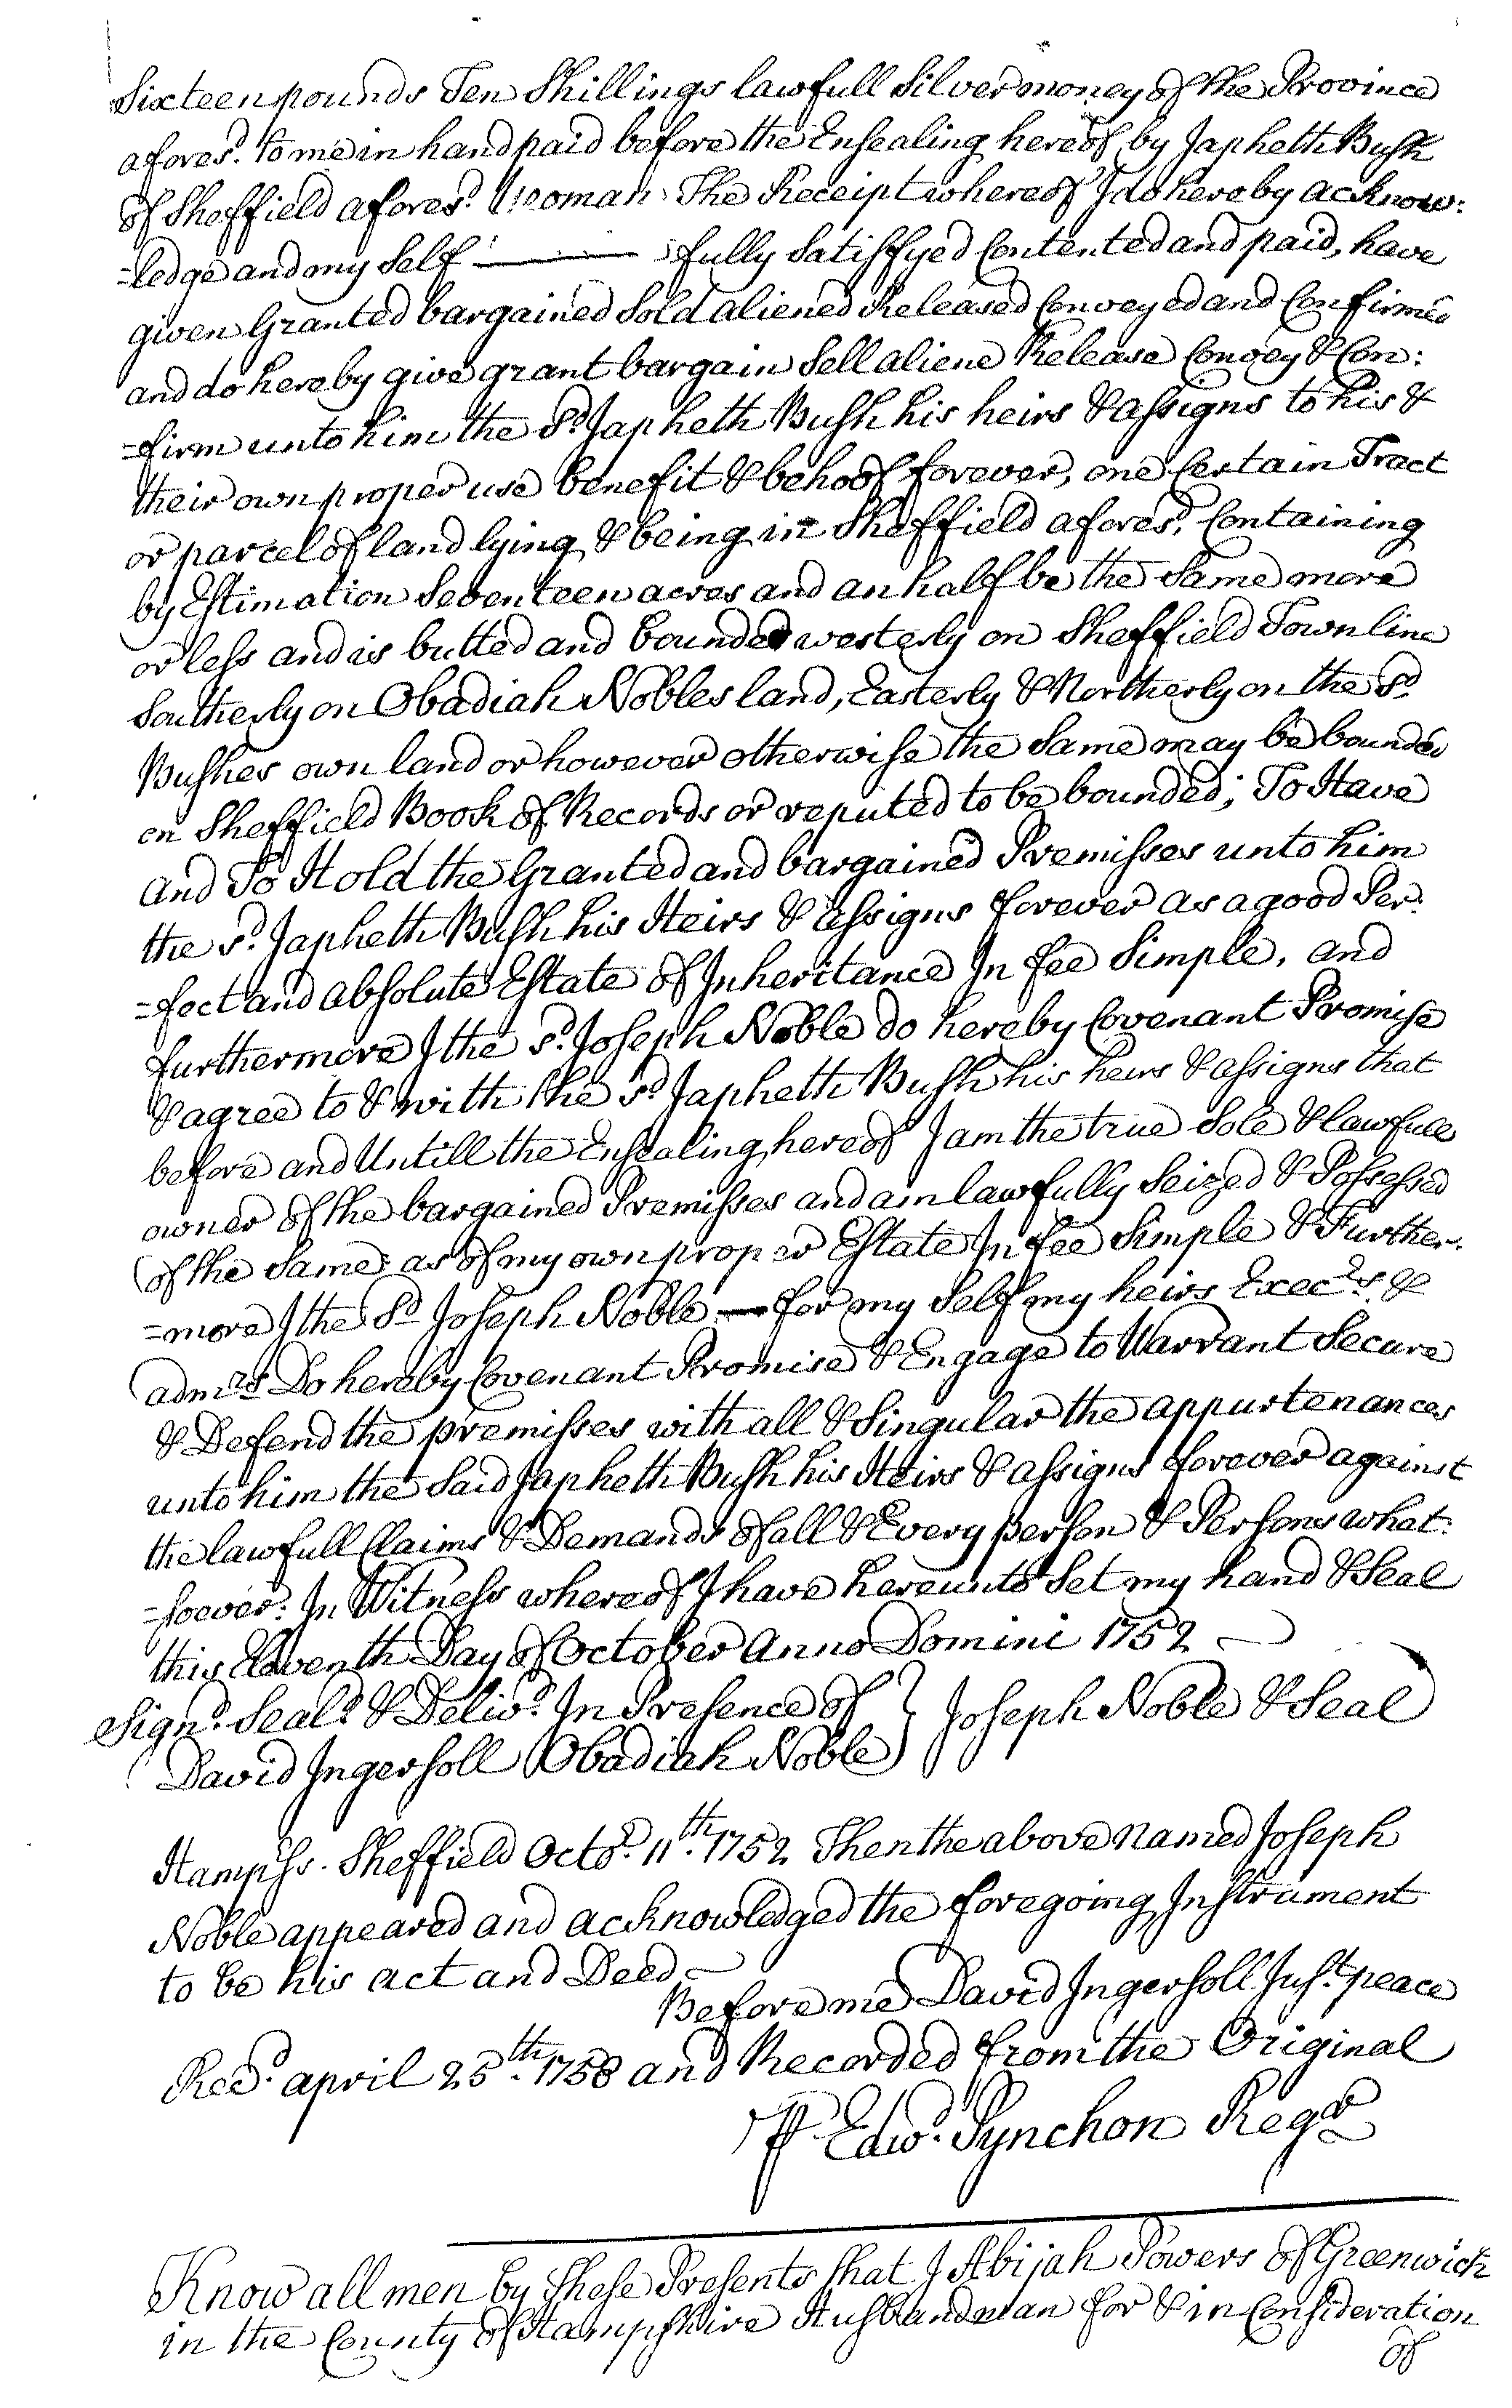 Sixteen pounds Ten Shillings lawfull Silver money of the Province
afores.d to me in hand paid before the Ensealing hereof by Japheth Bush
of Sheffield afores.d Yeoman The Receipt whereof I do hereby acknow:
=ledge and my Self ——— fully Satisfyed Contented and paid, have
given Granted bargained Sold aliened Released Conveyed and Confirmed
and do hereby give grant bargain Sell aliene Release Convey & Con:
=firm unto him the S.d Japheth Bush his heirs & assigns to his &
their own proper use benefit & behoof forever, one Certain Tract
or parcel of land lying & being in Sheffield afores.d, Containing
by Estimation Seventeen acres and an half be the Same more
or less and is butted and bounded westerly on Sheffield Town line
Southerly on Obadiah Nobles land, Easterly & Northerly on the S.d
Bushes own land or however otherwise the Same may be bounded
on Sheffield Book of Records or reputed to be bounded; To Have
and To Hold the Granted and bargained Premisses unto him
the s.d Japheth Bush his Heirs & assigns forever as a good Per:
=fect and absolute Estate of Inheritance In fee Simple, and
furthermore I the s.d Joseph Noble do hereby Covenant Promise
& agree to & with the s.d Japheth Bush his heirs & assigns that
before and Untill the Ensealing hereof I am the true Sole & lawfull
owner of the bargained Premisses and am lawfully Seized & Possessed
of the Same as of my own proper Estate In fee Simple & Further:
=more I the S.d Joseph Noble — for my Self my heirs Exec.rs &
adm.rs Do hereby Covenant Promise & Engage to Warrant Secure
& Defend the premisses with all & Singular the appurtenances
unto him the Said Japheth Bush his Heirs & assigns forever against
the lawfull Claims & Demands of all & Every person & Persons what:
=soever: In Witness whereof I have hereunto Set my hand & Seal
this Eleventh Day of October Anno Domini 1752
Sign.d Seal.d & Deliv.d In Presence of } Joseph Noble & Seal
David Ingersoll Obadiah Noble
Hamp:ss. Sheffield Octo.r 11.th 1752 Then the above Named Joseph
Noble appeared and acknowledged the foregoing Instrument
to be his act and Deed
Before me David Ingersoll Jus.t peace
Rec.d april 25.th 1758 and Recorded from the Original
P Edw.d Pynchon Reg.r
Know all men by these Presents that I Abijah Powers of Greenwich
in the County of Hampshire Husbandman for & in Consideration
of